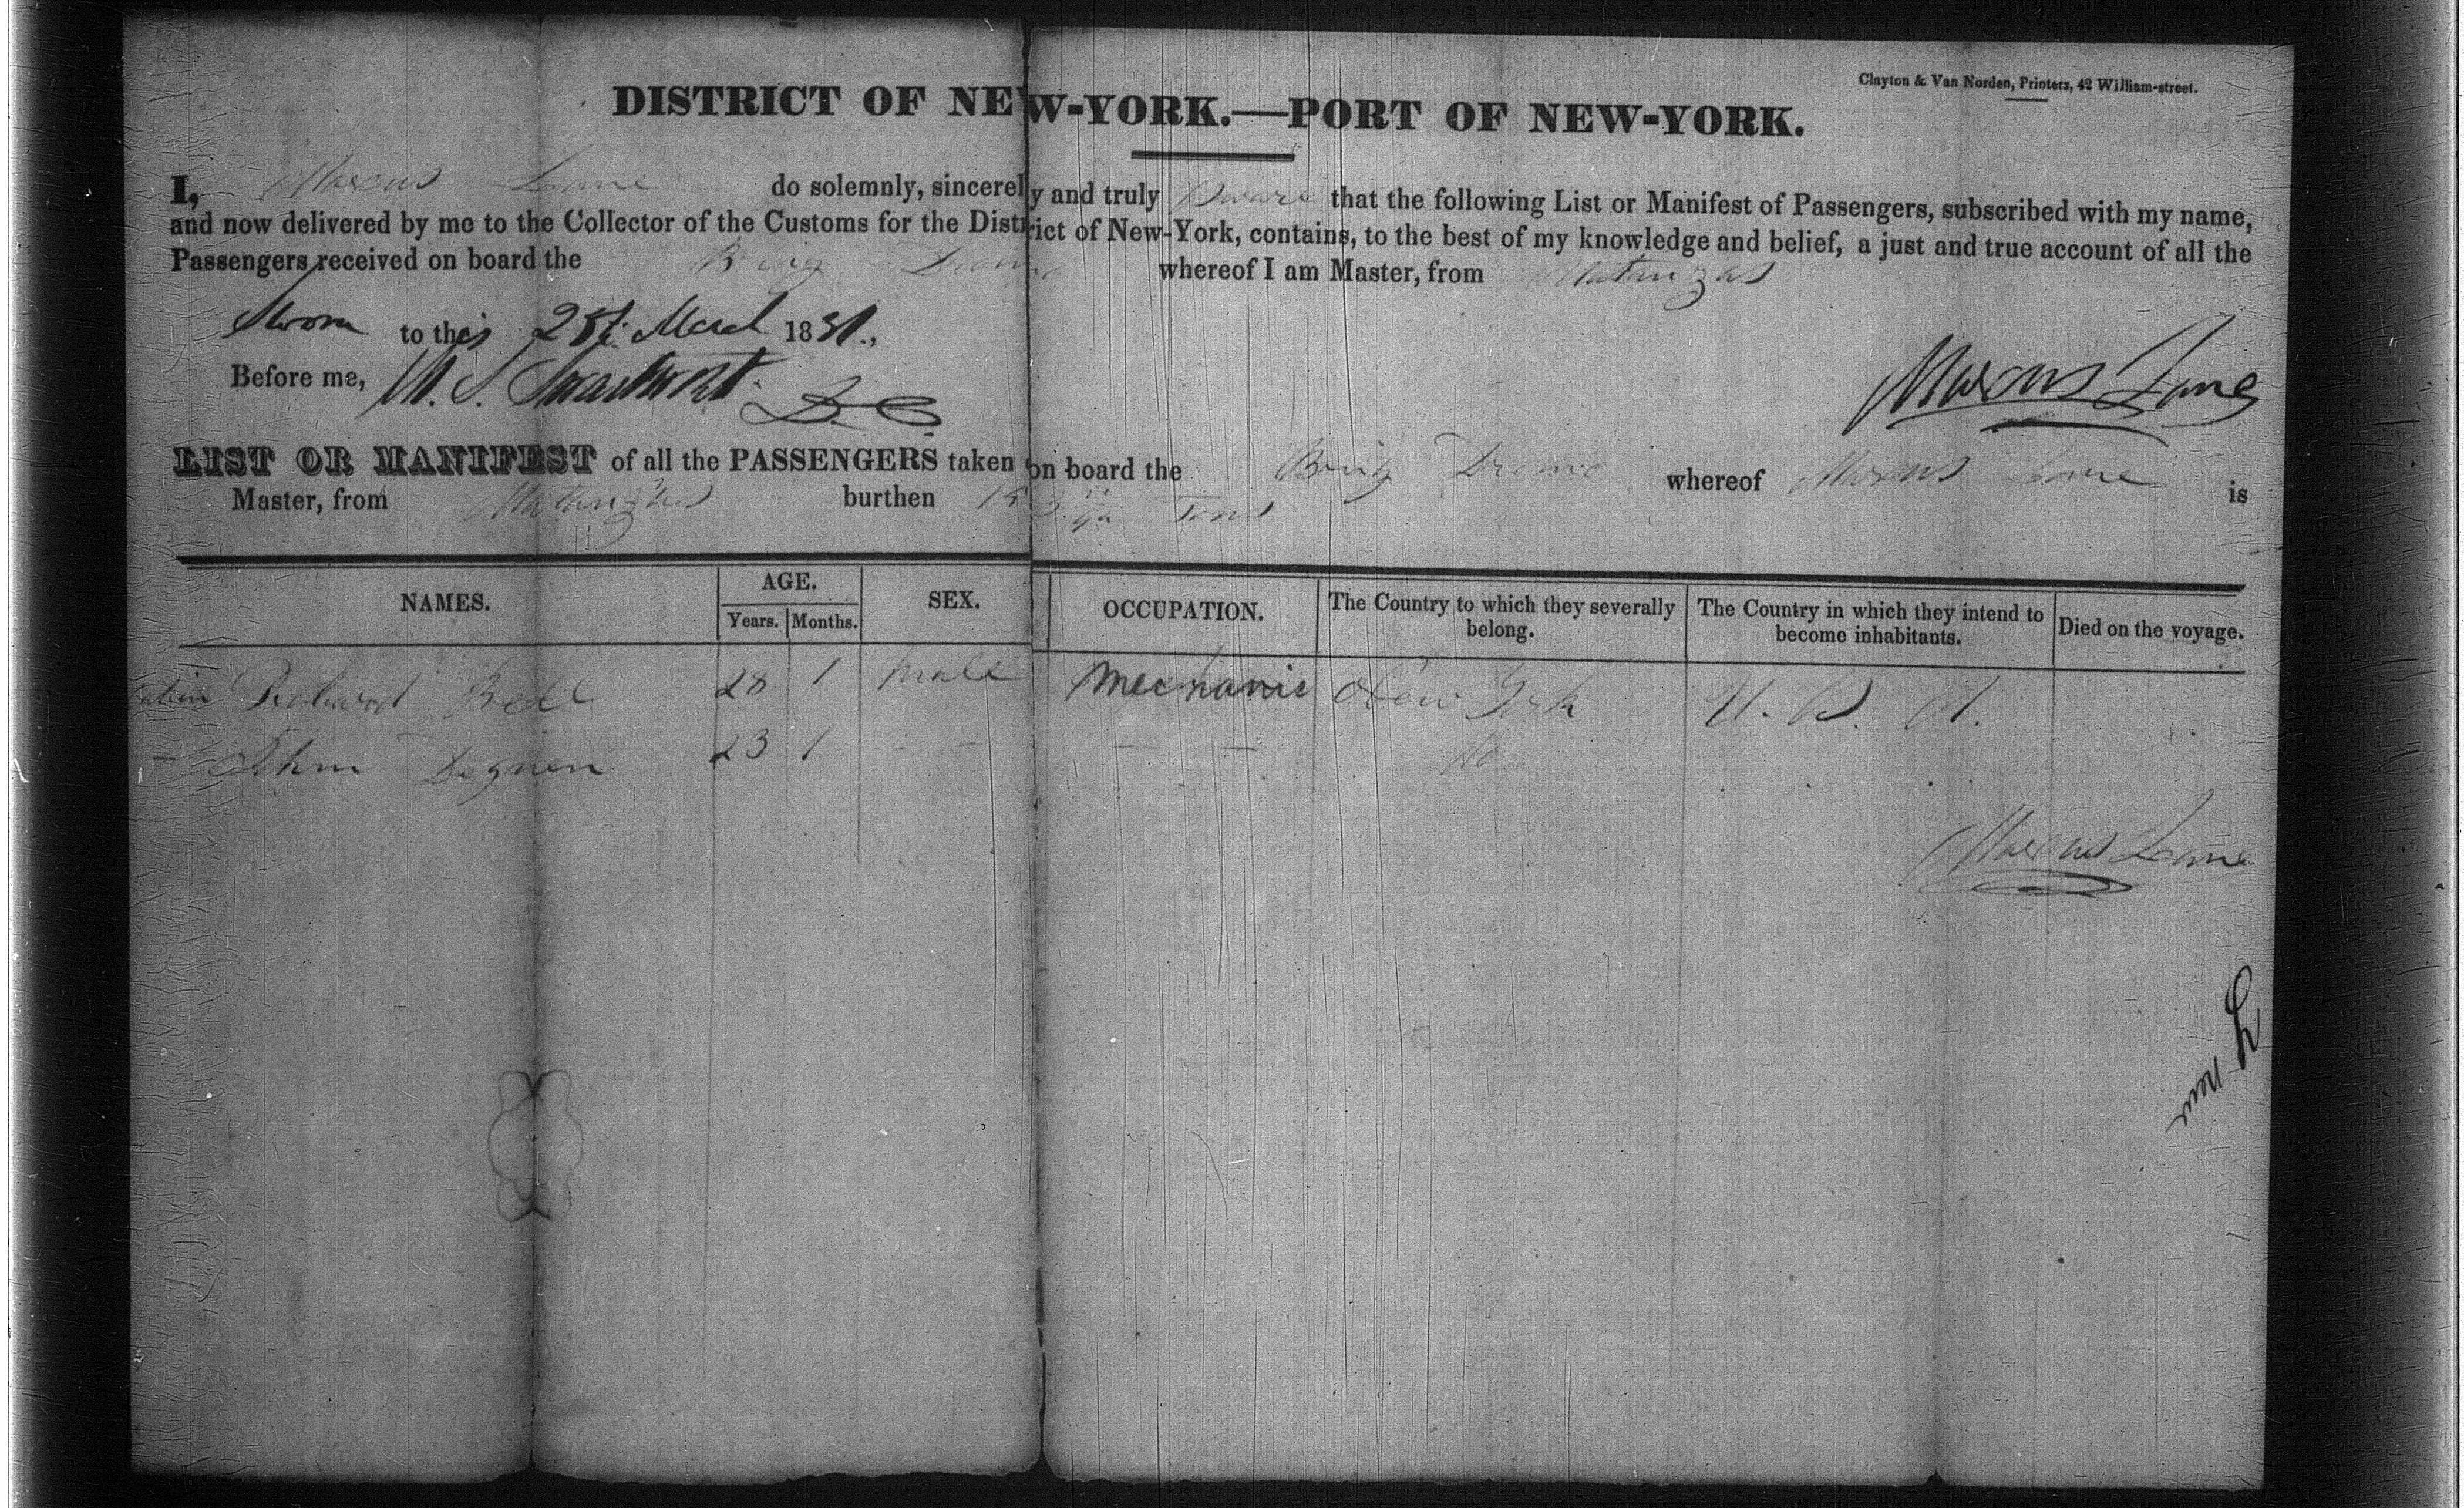 Clayton & Van Norden, Printers, 42 William-street.
DISTRICT OF NEW-YORK.—PORT OF NEW-YORK.
I, Marcus Lane do solemnly, sincerely and truly Swear that the following List or Manifest of Passengers, subscribed with my name,
and now delivered by me to the Collector of the Customs for the District of New-York, contains, to the best of my knowledge and belief, a just and true account of all the
Passengers received on board the Brig Dromo whereof I am Master, from Matanzas
Sworn to this March 1831.,
Before me, Swartwout D C
Marcus Lane
LIST OR MANIFEST of all the PASSENGERS taken on board the Brig Dromo whereof Marcus Lane is
Master, from Matanzas burthen Tons
NAMES. AGE. Years. Months. SEX. OCCUPATION. The Country to which they severally belong. The Country in which they intend to become inhabitants. Died on the voyage.
Richard Bell 28 1 male Mechanic New York U. S. A.
John Degnen 23 1 — — — —
Marcus Lane